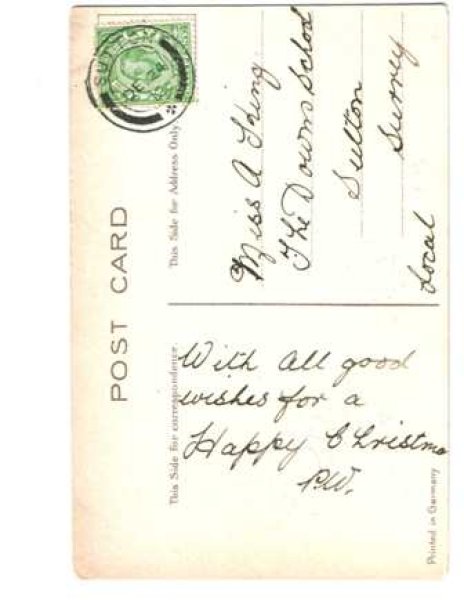 POST CARD
This Side for correspondence.
This Side for Address Only
SUTTON
DE 24
Miss A King
The Downs School
Sutton
Surrey
Local
With all good
wishes for a
Happy Christmas
P.W.
Printed in Germany